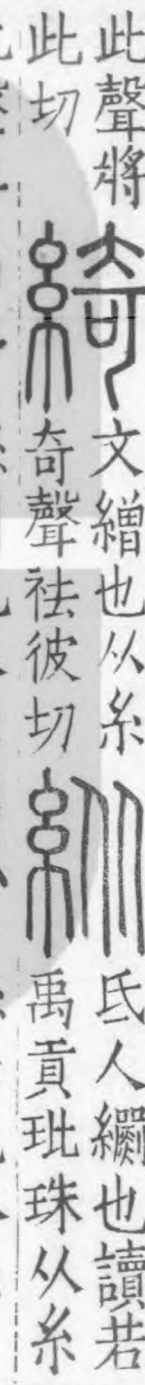 此聲將
此切
綺
文繒也从糸
奇聲袪彼切
紕
氐人𦇧也讀若
禹貢玭珠从糸